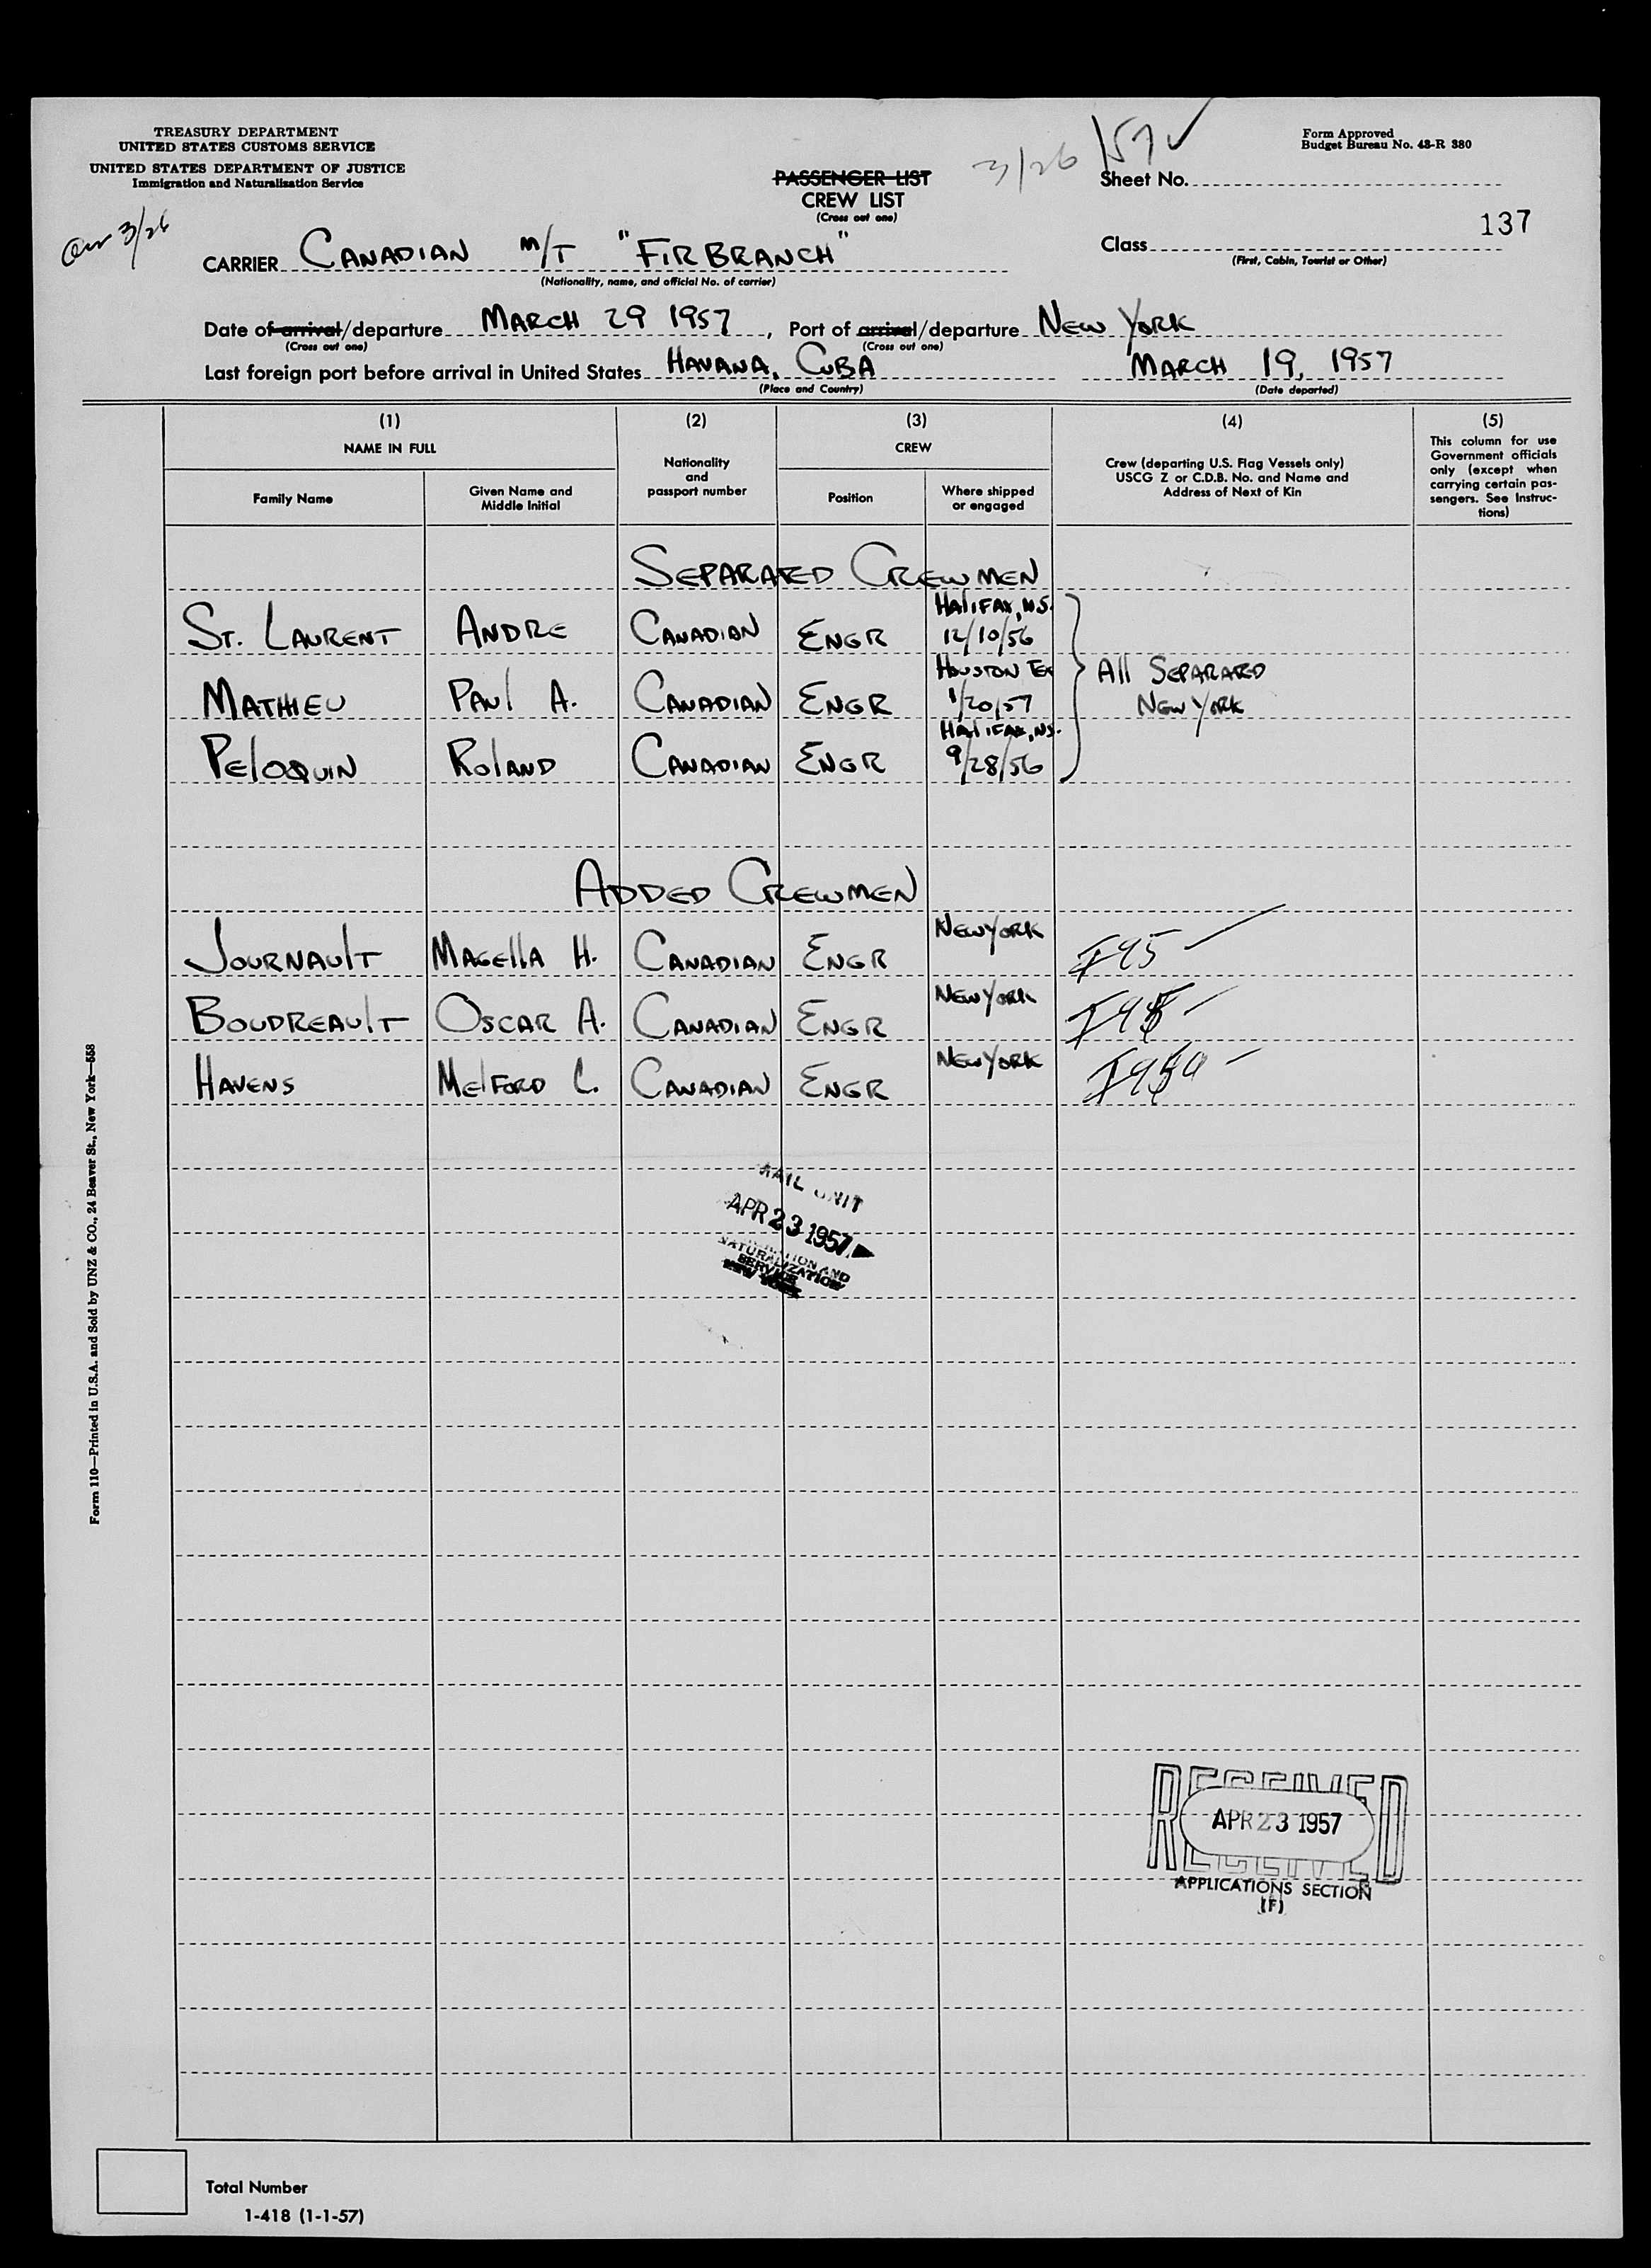 TREASURY DEPARTMENT
UNITED STATES CUSTOMS SERVICE
UNITED STATES DEPARTMENT OF JUSTICE
Immigration and Naturalization Service
3/26/57
Form Approved
Budget Bureau No. 43-R 380
PASSENGER LIST
CREW LIST
(Cross out one)
Sheet No.
137
3/26
CARRIER CANADIAN M/T "FIRBRANCH"
(Nationality, name, and official No. of carrier)
Class
(First, Cabin, Tourist or Other)
Date of arrival/departure MARCH 29 1957, Port of arrival/departure NEW YORK
(Cross out one) (Cross out one)
Last foreign port before arrival in United States HAVANA, CUBA MARCH 19, 1957
(Place and Country) (Date departed)
(1) (2) (3) (4) (5)
NAME IN FULL
Family Name
Given Name and Middle Initial
Nationality and passport number
CREW
Position
Where shipped or engaged
Crew (departing U.S. Flag Vessels only)
USCG Z or C.D.B. No. and Name and
Address of Next of Kin
This column for use
Government officials
only (except when
carrying certain pas-
sengers. See Instruc-
tions)
SEPARATED CREWMEN
ST. LAURENT ANDRE CANADIAN ENGR HALIFAX, N.S. 12/10/56
MATHIEU PAUL A. CANADIAN ENGR HOUSTON TEX 1/20/57
PELOQUIN ROLAND CANADIAN ENGR HALIFAX, N.S. 9/28/56
All SEPARARED
NEW YORK
ADDED CREWMEN
JOURNAULT MAGELLA H. CANADIAN ENGR NEW YORK I95
BOUDREAULT OSCAR A. CANADIAN ENGR NEW YORK
HAVENS MELFORD C. CANADIAN ENGR NEW YORK
MAIL UNIT
APR 23 1957
NATURALIZATION
SERVICE
NEW YORK
RECEIVED
APR 23 1957
RECEIVED
APPLICATIONS SECTION
(F)
Form 110—Printed in U.S.A. and Sold by UNZ & CO., 24 Beaver St., New York—558
Total Number
1-418 (1-1-57)